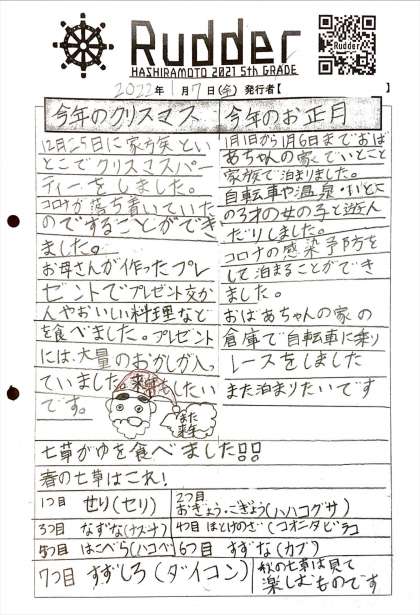 Rudder
HASHIRAMOTO 2021 5th GRADE
Rudder
2022年1月7日(金) 発行者【 】
今年のクリスマス
12月25日に家族といとこでクリスマスパー
ティーをしました。
コロナが落ち着いていた
のでするごとができ
ました。
お母さんが作ったプレ
ゼントでプレゼント交か
んやおいしい料理など
を食べました。プレゼント
には大量のおかしが入っ
ていました。来年もしたい
です。
また
来年〜
今年のお正月
1月1日から1月6日までおば
あちゃんの家でいとこと
家族で泊まりました。
自転車や温泉・いとこ
の3才の女の子と遊ん
だりしました。
コロナの感染予防を
して泊まることができ
ました。
おばあちゃんの家の
倉庫で自転車に乗り
レースをしました
また泊まりたいです
七草がゆを食べました!!
春の七草はこれ!
1つ目 せり(セリ)
2つ目
おぎょう・ごぎょう(ハハコグサ)
3つ目 なずな(ナズナ)
4つ目 ほとけのざ(コオニタビラコ)
5つ目 はこべら(ハコベ)
6つ目 すずな(カブ)
7つ目 すずしろ(ダイコン)
秋の七草は見て
楽しむものです